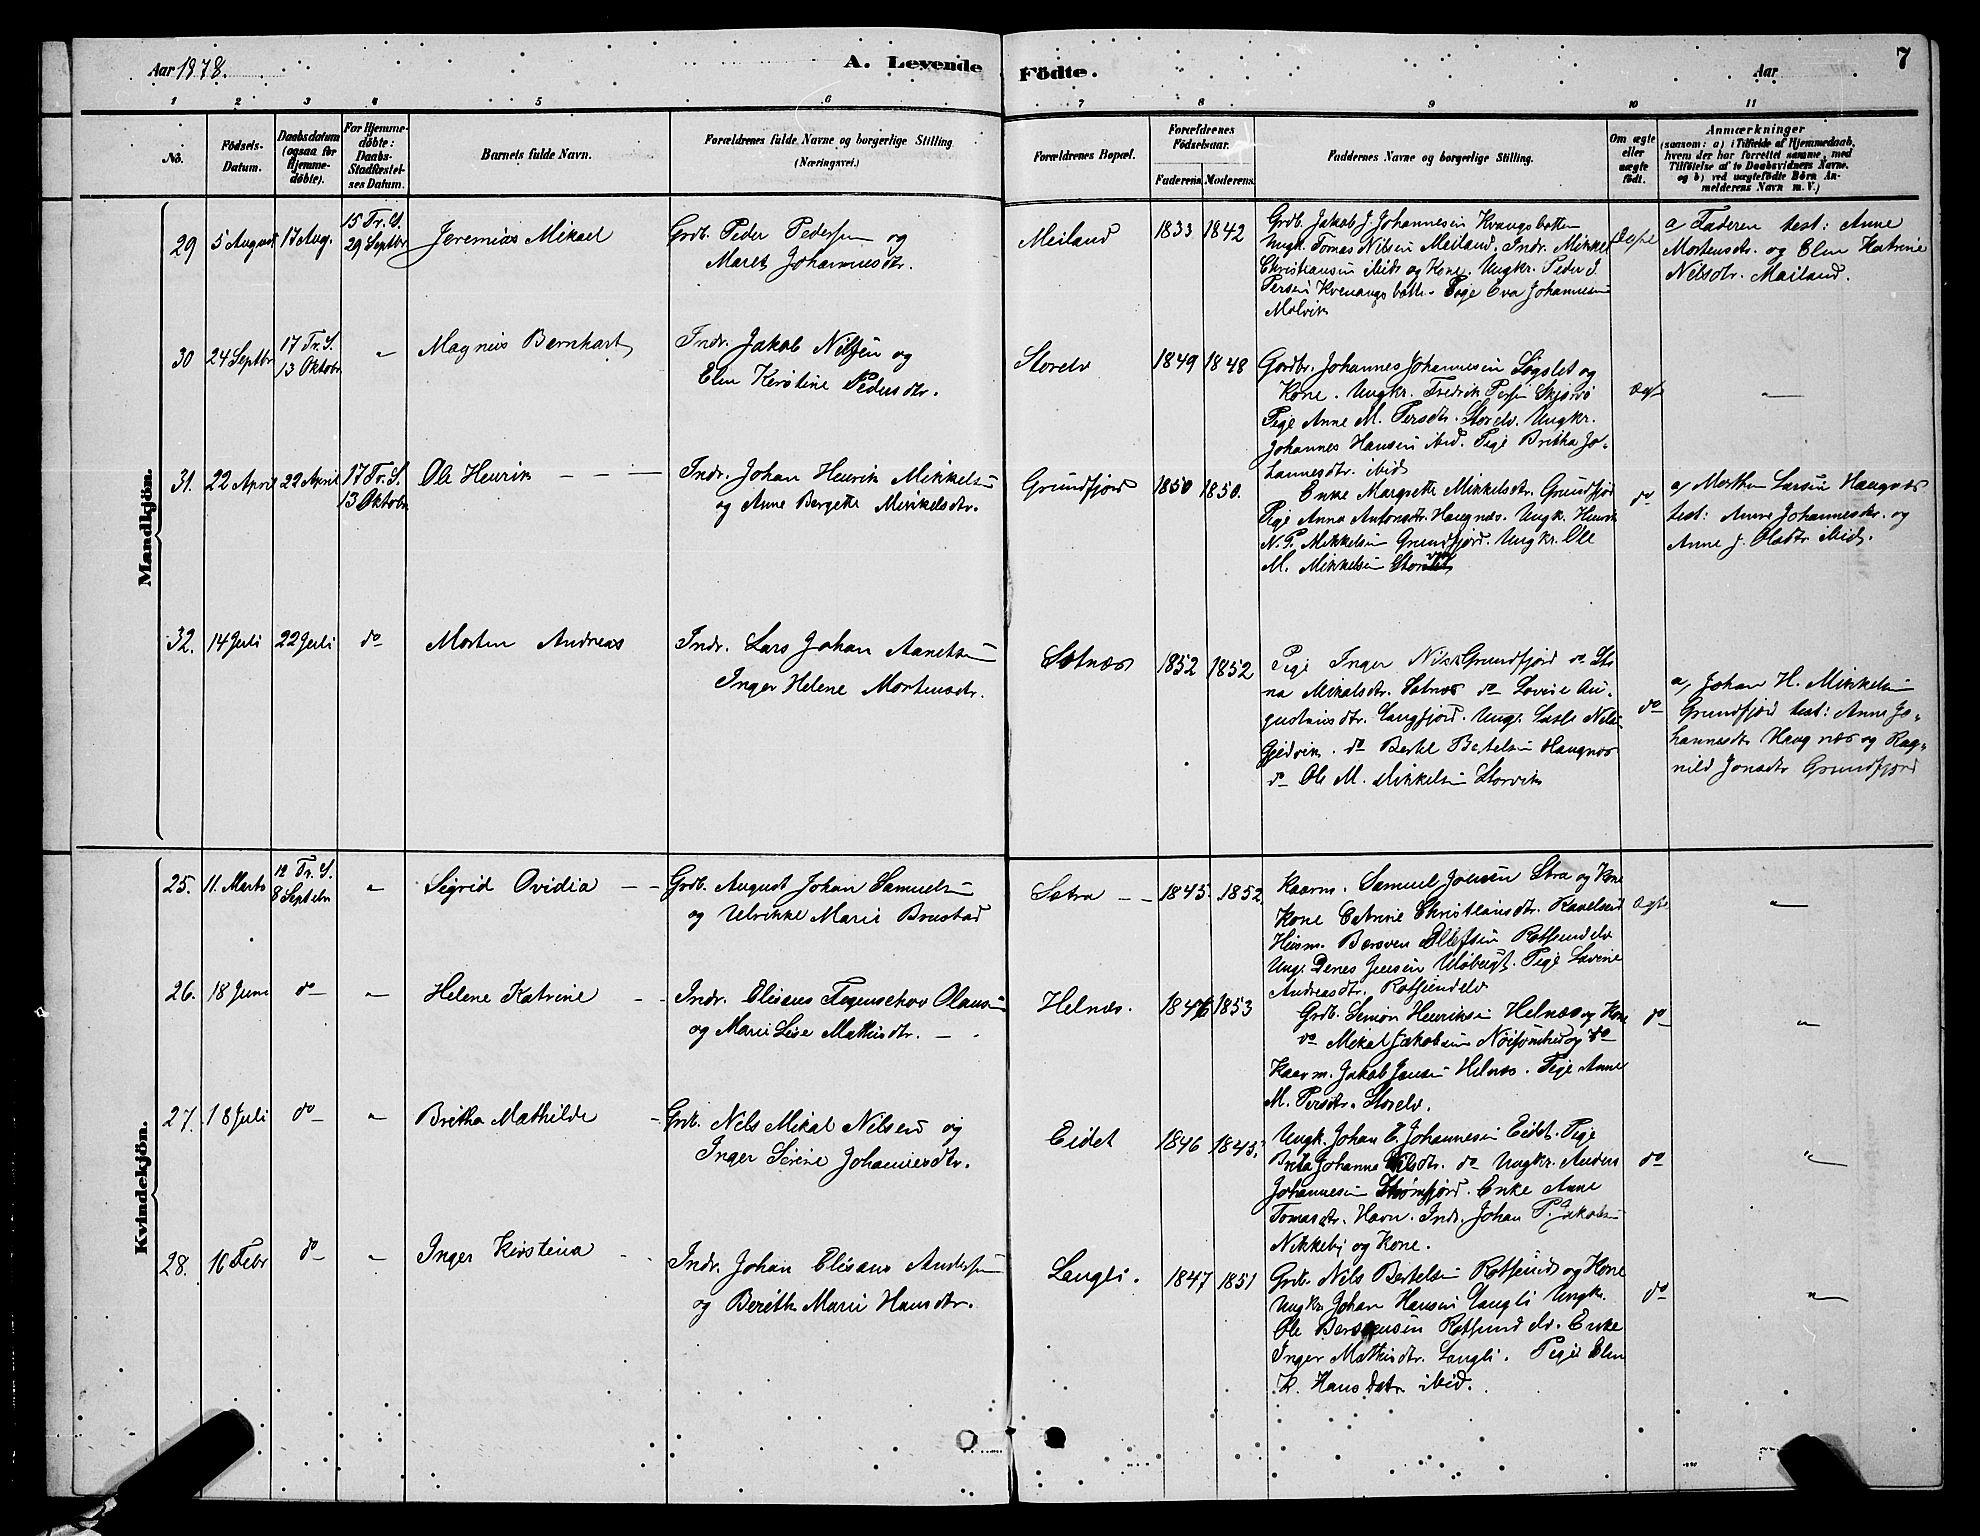 Aar 1878.
A. Levende Födte.
Aar
7
1 2 3 4 5 6 7 8 9 10 11
No.
Födsels-Datum.
Daabsdatum (ogsaa for Hjemme-döbte).
For Hjemme-döbte: Daabs-Stadfæstel-ses Datum.
Barnets fulde Navn.
Forældrenes fulde Navne og borgerlige Stilling (Næringsvei.)
Forældrenes Bopæl.
Forældrenes Födselsaar.
Faderens. Moderens.
Faddernes Navne og borgerlige Stilling.
Om ægte eller uægte født.
Anmærkninger
(saasom: a) i Tilfælde af Hjemmedaab, hvem der har forrettet samme, med Tilföielse af to Daabsvidners Navne. og b) ved uægtefödte Börn An-melderens Navn m. V.)
Mandkjön.
29 5 August 17 Aug. 15 Tr. S. 29 Septbr
Jeremias Mikael
Grdb. Peder Pedersen og
Maret Johannesdtr.
Meiland 1833 1842
Grdb. Jakob J Johannesen Kvangsbotten
Ungk. Tomas Nilsen Meiland. Indr. Mikkel
Christiansen ibid og Kone. Ungkr. Peder J.
Persen Kvenangsbotn. Pige Eva Johannesen
Molvik
Ægte
a Faderen test: Anne
Mortensdtr. og Elen Katrine
Nilsdtr. Mailand.
30 24 Septbr 17 Tr. S. 13 Oktobr "
Magnus Bernhart
Indr. Jakob Nilsen og
Elen Kerstine Pedersdtr.
Storelv 1849 1848
Gardbr. Johannes Johannesen Sogslet og
Kone. Ungkr. Fredrik Persen Skjervø
Pige Anne M. Persdtr. Storelv. Ungkr.
Johannes Hansen ibid. Pige Britha Jo-
hannesdtr. ibid
Ægte
"
31. 22 April 22 April 17 Tr. S. 13 Oktobr
Ole Henrik
Indr. Johan Henrik Mikkelsen
og Anne Bergette Mikkelsdtr.
Grundfjord 1850 1850.
Enke Margrethe Mikkelsdtr. Grundfjord
Pige Anna Antonsdtr. Haugnæs. Ungk. Henrik
N. P. Mikkelsen Grundfjord. Ungkr. Ole
M. Mikkelsen Storvik
do
a, Morthen Larsen Haugnæs
test: Anne Johannesdtr. og
Anne J. Olsdtr ibid.
32. 14 Juli 22 Juli do
Morten Andreas
Indr. Lars Johan Aanetsen
Inger Helene Mortensdtr.
Sotnæs 1852 1852
Pige Inger Nils Grundfjord do Sti
na Mikalsdtr. Sotnæs do Lovise Au-
gustinusdtr. Langfjord. Ungr. Lasle Nils.
Gjedvik. do Bertel Bertelsen Haugnæs
do Ole M. Mikkelsen Storvik
do
a, Johan H. Mikkelsen
Grundfjord test: Anne Jo-
hannesdtr Haugnæs og Rag-
nild Jonsdtr Grundfjord
Kvindekjön.
25. 11. Marts 12 Tr. S. 8 Septebr "
Sigrid Ovidia
Grdb. August Johan Samuelsen
og Ulrikke Marie Brustad
Sotra 1845. 1852
Kaarm. Samuel Jensen Stra og Kone
Kone Catrine Christiansdtr. Ravelseid
Husm. Bærsven Ellefsen Rotsundelv
Ungr. Denes Jensen Uløbugt. Pige Lavine
Andreasdtr. Rotsundelv
Ægte
"
26. 18 Juni do "
Helene Katrine
Indr. Elisæus Olausen
og Marie Lise Mathisdtr.
Helnæs. 1846 1853
Grdb. Simon Henriksen Helnæs og Kone
do Mikal Jakobsen og do
Kaarm. Jakob Jensen Helnæs. Pige Anne
M. Persdtr. Storelv.
do
"
27. 18 Juli do "
Britha Mathilde
Grb. Nels Mikal Nilsen og
Inger Serine Johannesdtr.
Eidet 1846 1845.
Ungk. Johan E. Johannesen Eidet. Pige
Brita Johanna Nilsdtr. do Ungkr. Anders
Johannesen Strømfjord. Enke Anne
Tomasdtr. Havn. Indr. Johan P. Jakobsen
Nikkeby og Kone.
do
"
28. 16 Febr do "
Inger Kirstina
Indr. Johan Elisæus Andersen
og Berith Marie Hansdtr.
Langli. 1847 1851
Grb. Nils Bertelsen Rotsund og Kone
Ungkr Johan Hansen Langli Ungkr.
Ole Bersvensen Rotsundelv. Enke
Inger Mathisdtr. Langli. Pige Elen
K. Hansdatr ibid.
do
"